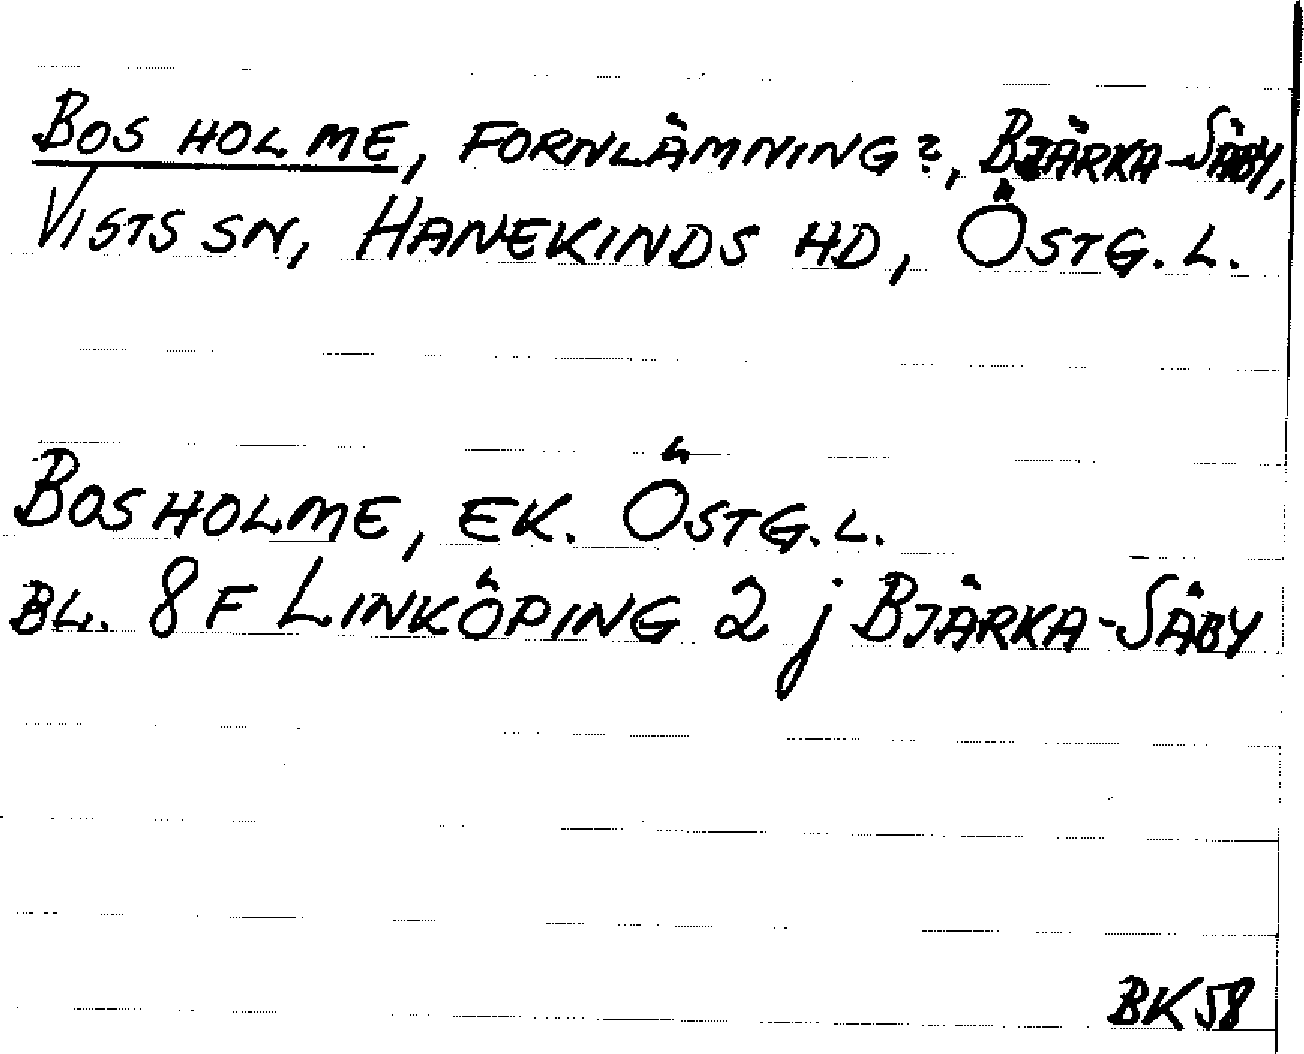 BOS HOLME, FORNLÄMNING?, BJÄRKA-SÄBY,
VISTS SN, HANEKINDS HD, ÖSTG. L.
BOSHOLME, EK. ÖSTG. L.
BL. 8F LINKÖPING 2 j BJÄRKA-SÄBY
BK58